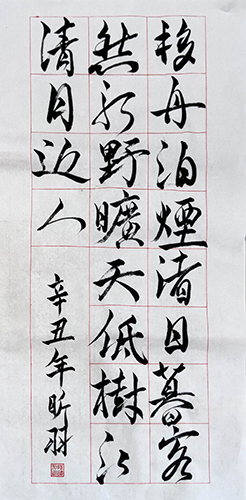 移舟泊煙渚日暮客
愁新野曠天低樹江
清月近人
辛丑年昕羽